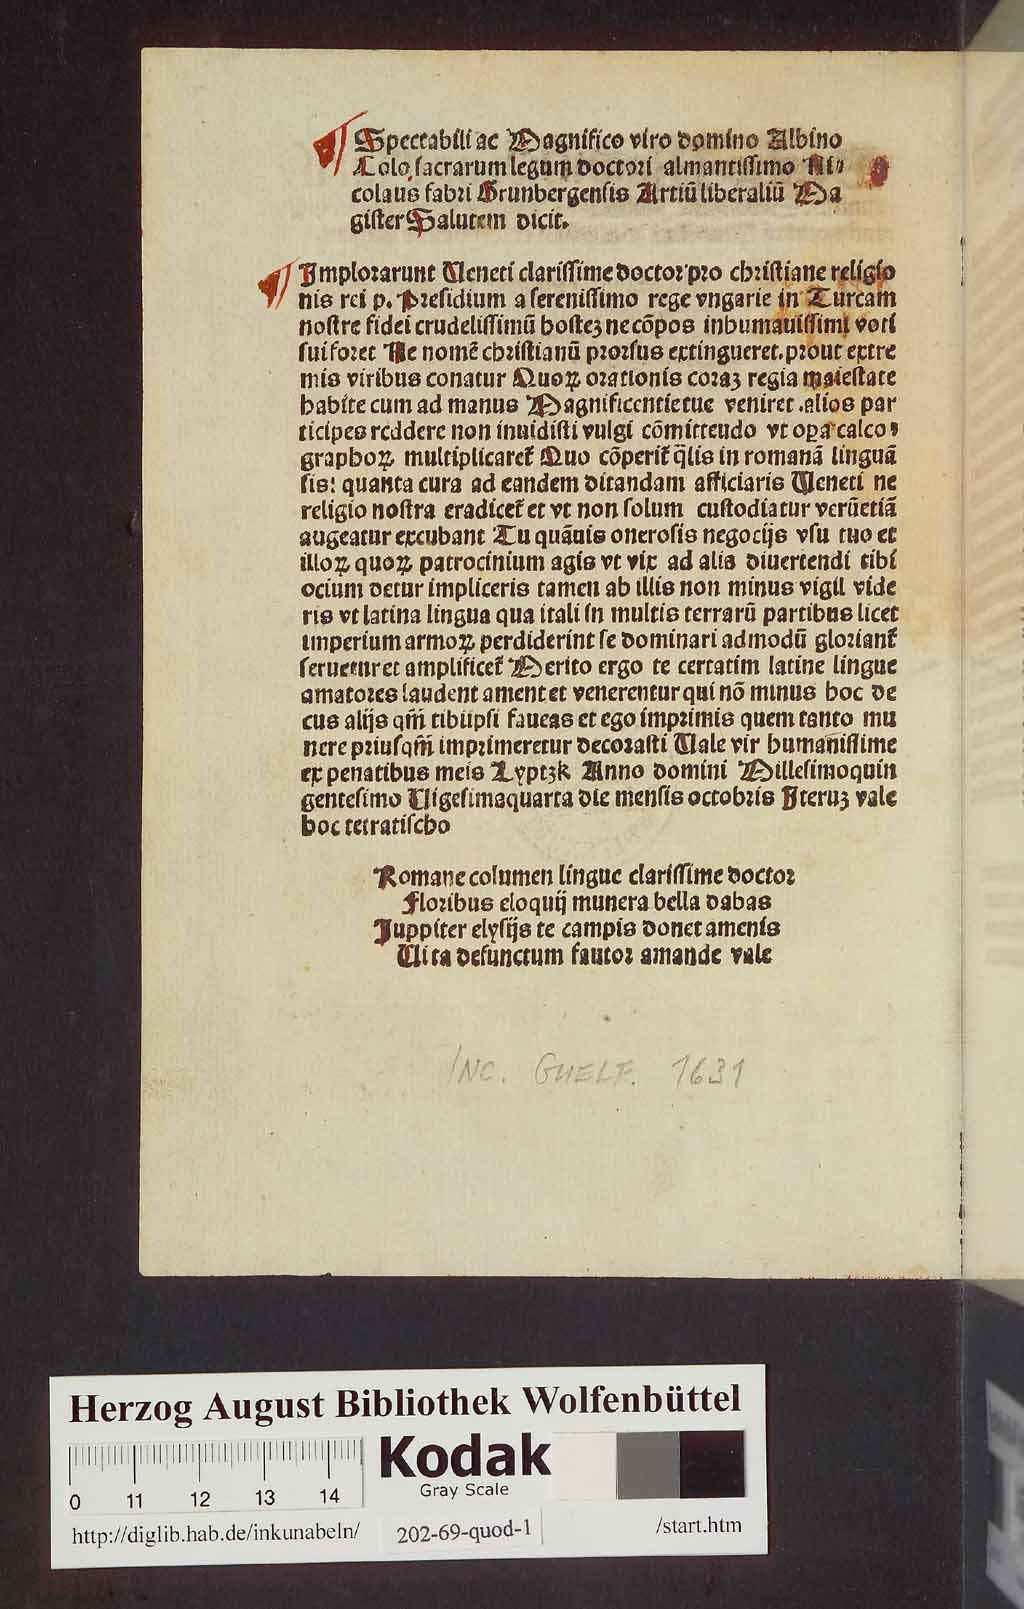 Spectabili ac Magnifico viro domino Albino
Colo sacrarum legum doctori almantissimo Ni⸗
colaus fabri Grunbergensis Artiū liberaliū Ma
gister Salutem dicit.
Implorarunt Veneti clarissime doctor pro christiane religio
nis rei p. Presidium a serenissimo rege vngarie in Turcam
nostre fidei crudelissimū hosteꝫ ne cōpos inhumanissimi voti
sui foret Ne nomē christianū prorsus extingueret. prout extre
mis viribus conatur Quoꝝ orationis coraꝫ regia maiestate
habite cum ad manus Magnificentie tue veniret .alios par
ticipes reddere non inuidisti vulgi cōmittendo vt opa calco⸗
graphoꝝ multiplicaret᷑ Quo cōperit᷑ q̄lis in romanā linguā
sis: quanta cura ad eandem ditandam afficiaris Veneti ne
religio nostra eradicet᷑ et vt non solum custodiatur verūetiā
augeatur excubant Tu quāuis onerosis negocijs vsu tuo et
illoꝝ quoꝝ patrocinium agis vt vix ad alia diuertendi tibi
ocium detur impliceris tamen ab illis non minus vigil vide
ris vt latina lingua qua itali in multis terrarū partibus licet
imperium armoꝝ perdiderint se dominari admodū gloriant᷑
seruetur et amplificet᷑ Merito ergo te certatim latine lingue
amatores laudent ament et venerentur qui nō minus hoc de
cus alijs qm̄ tibiipsi faueas et ego imprimis quem tanto mu
nere priusqm̄ imprimeretur decorasti Vale vir humanissime
ex penatibus meis Lyptzk Anno domini Millesimoquin
gentesimo Vigesimaquarta die mensis octobris Iteruꝫ vale
hoc tetratischo
Romane columen lingue clarissime doctor
Floribus eloquij munera bella dabas
Juppiter elysijs te campis donet amenis
Vita defunctum fautor amande vale
INC. GUELF. 1631
Herzog August Bibliothek Wolfenbüttel
Kodak
Gray Scale
0 11 12 13 14
http://diglib.hab.de/inkunabeln/ 202-69-quod-1 /start.htm